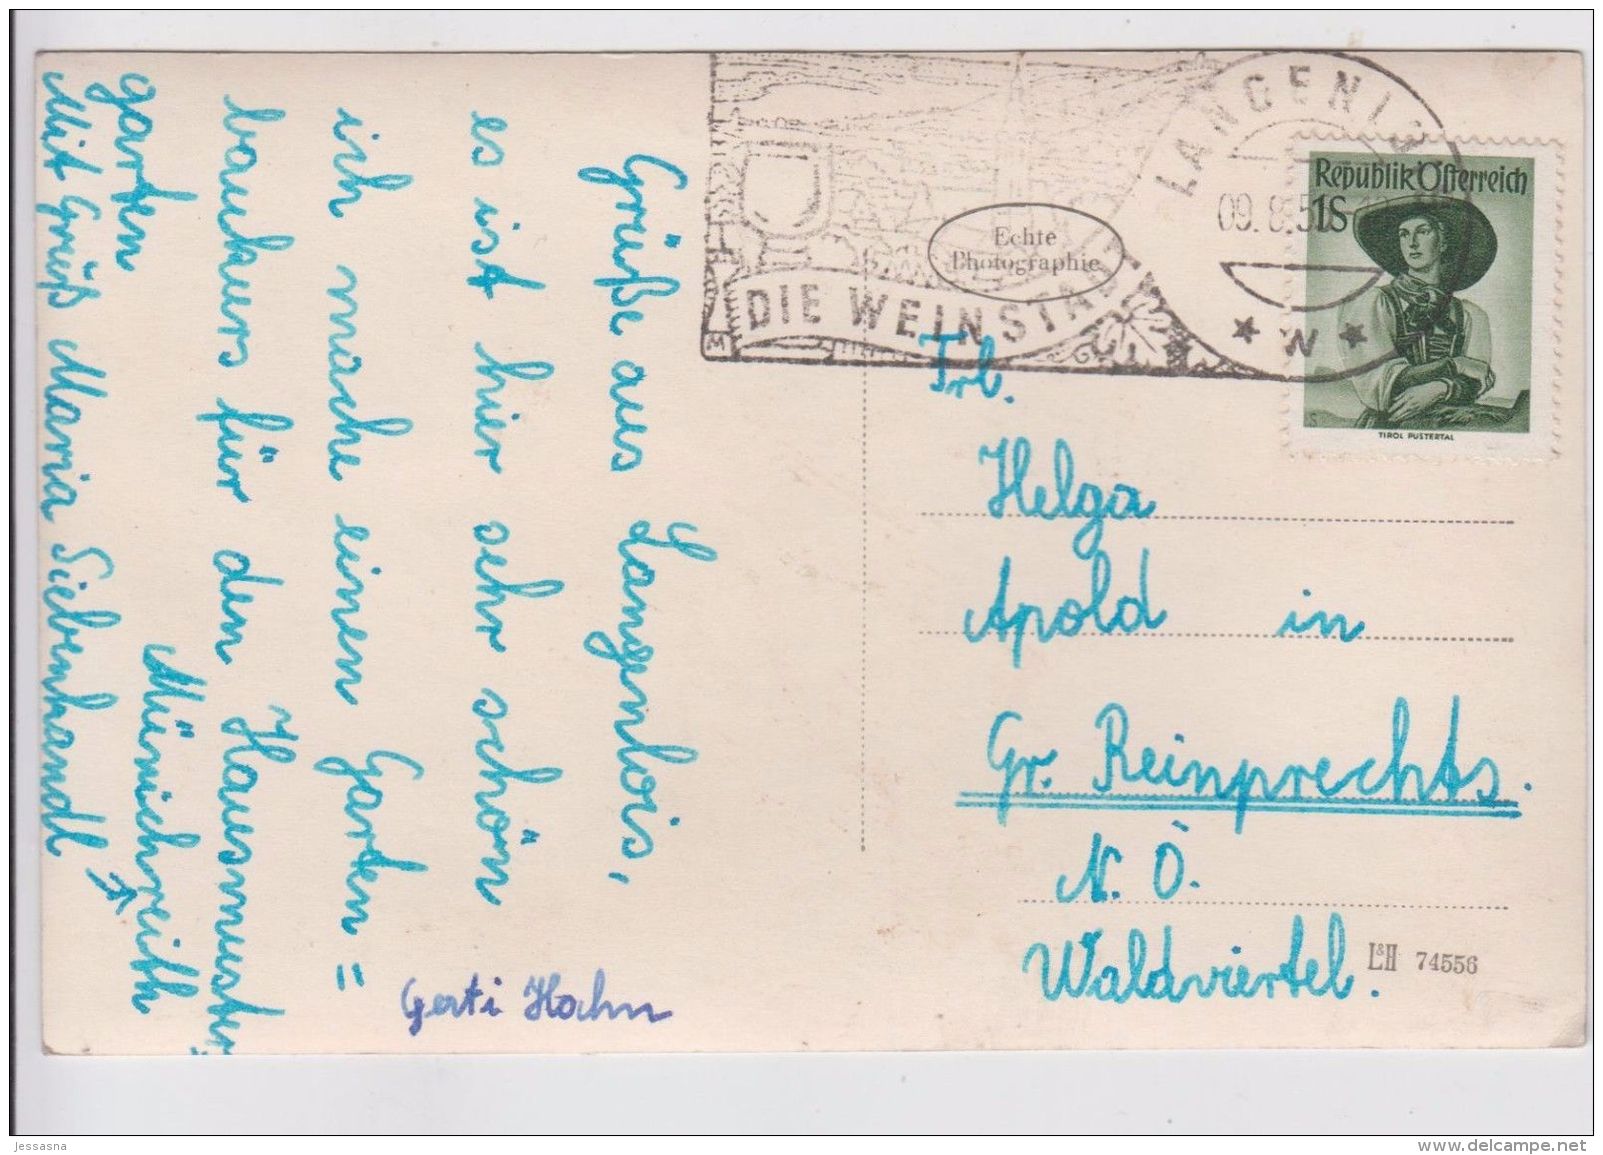 Grüße aus Langenlois,
es ist hier sehr schön
ich mache einen Garten =
baukurs für den Hausmuster
garten
Münichreith
Mit Grüß Maria Siebenhandl
Gerti Hahn
Echte
Photographie
DIE WEINSTADT
LANGENLOIS
09. 8. 5
W
M
Republik Österreich
1S
TIROL PUSTERTAL
Frl.
Helga
Apold in
Gr. Reinprechts.
N. Ö.
Waldviertel.
L&H 74556
jessasna
www.delcampe.net